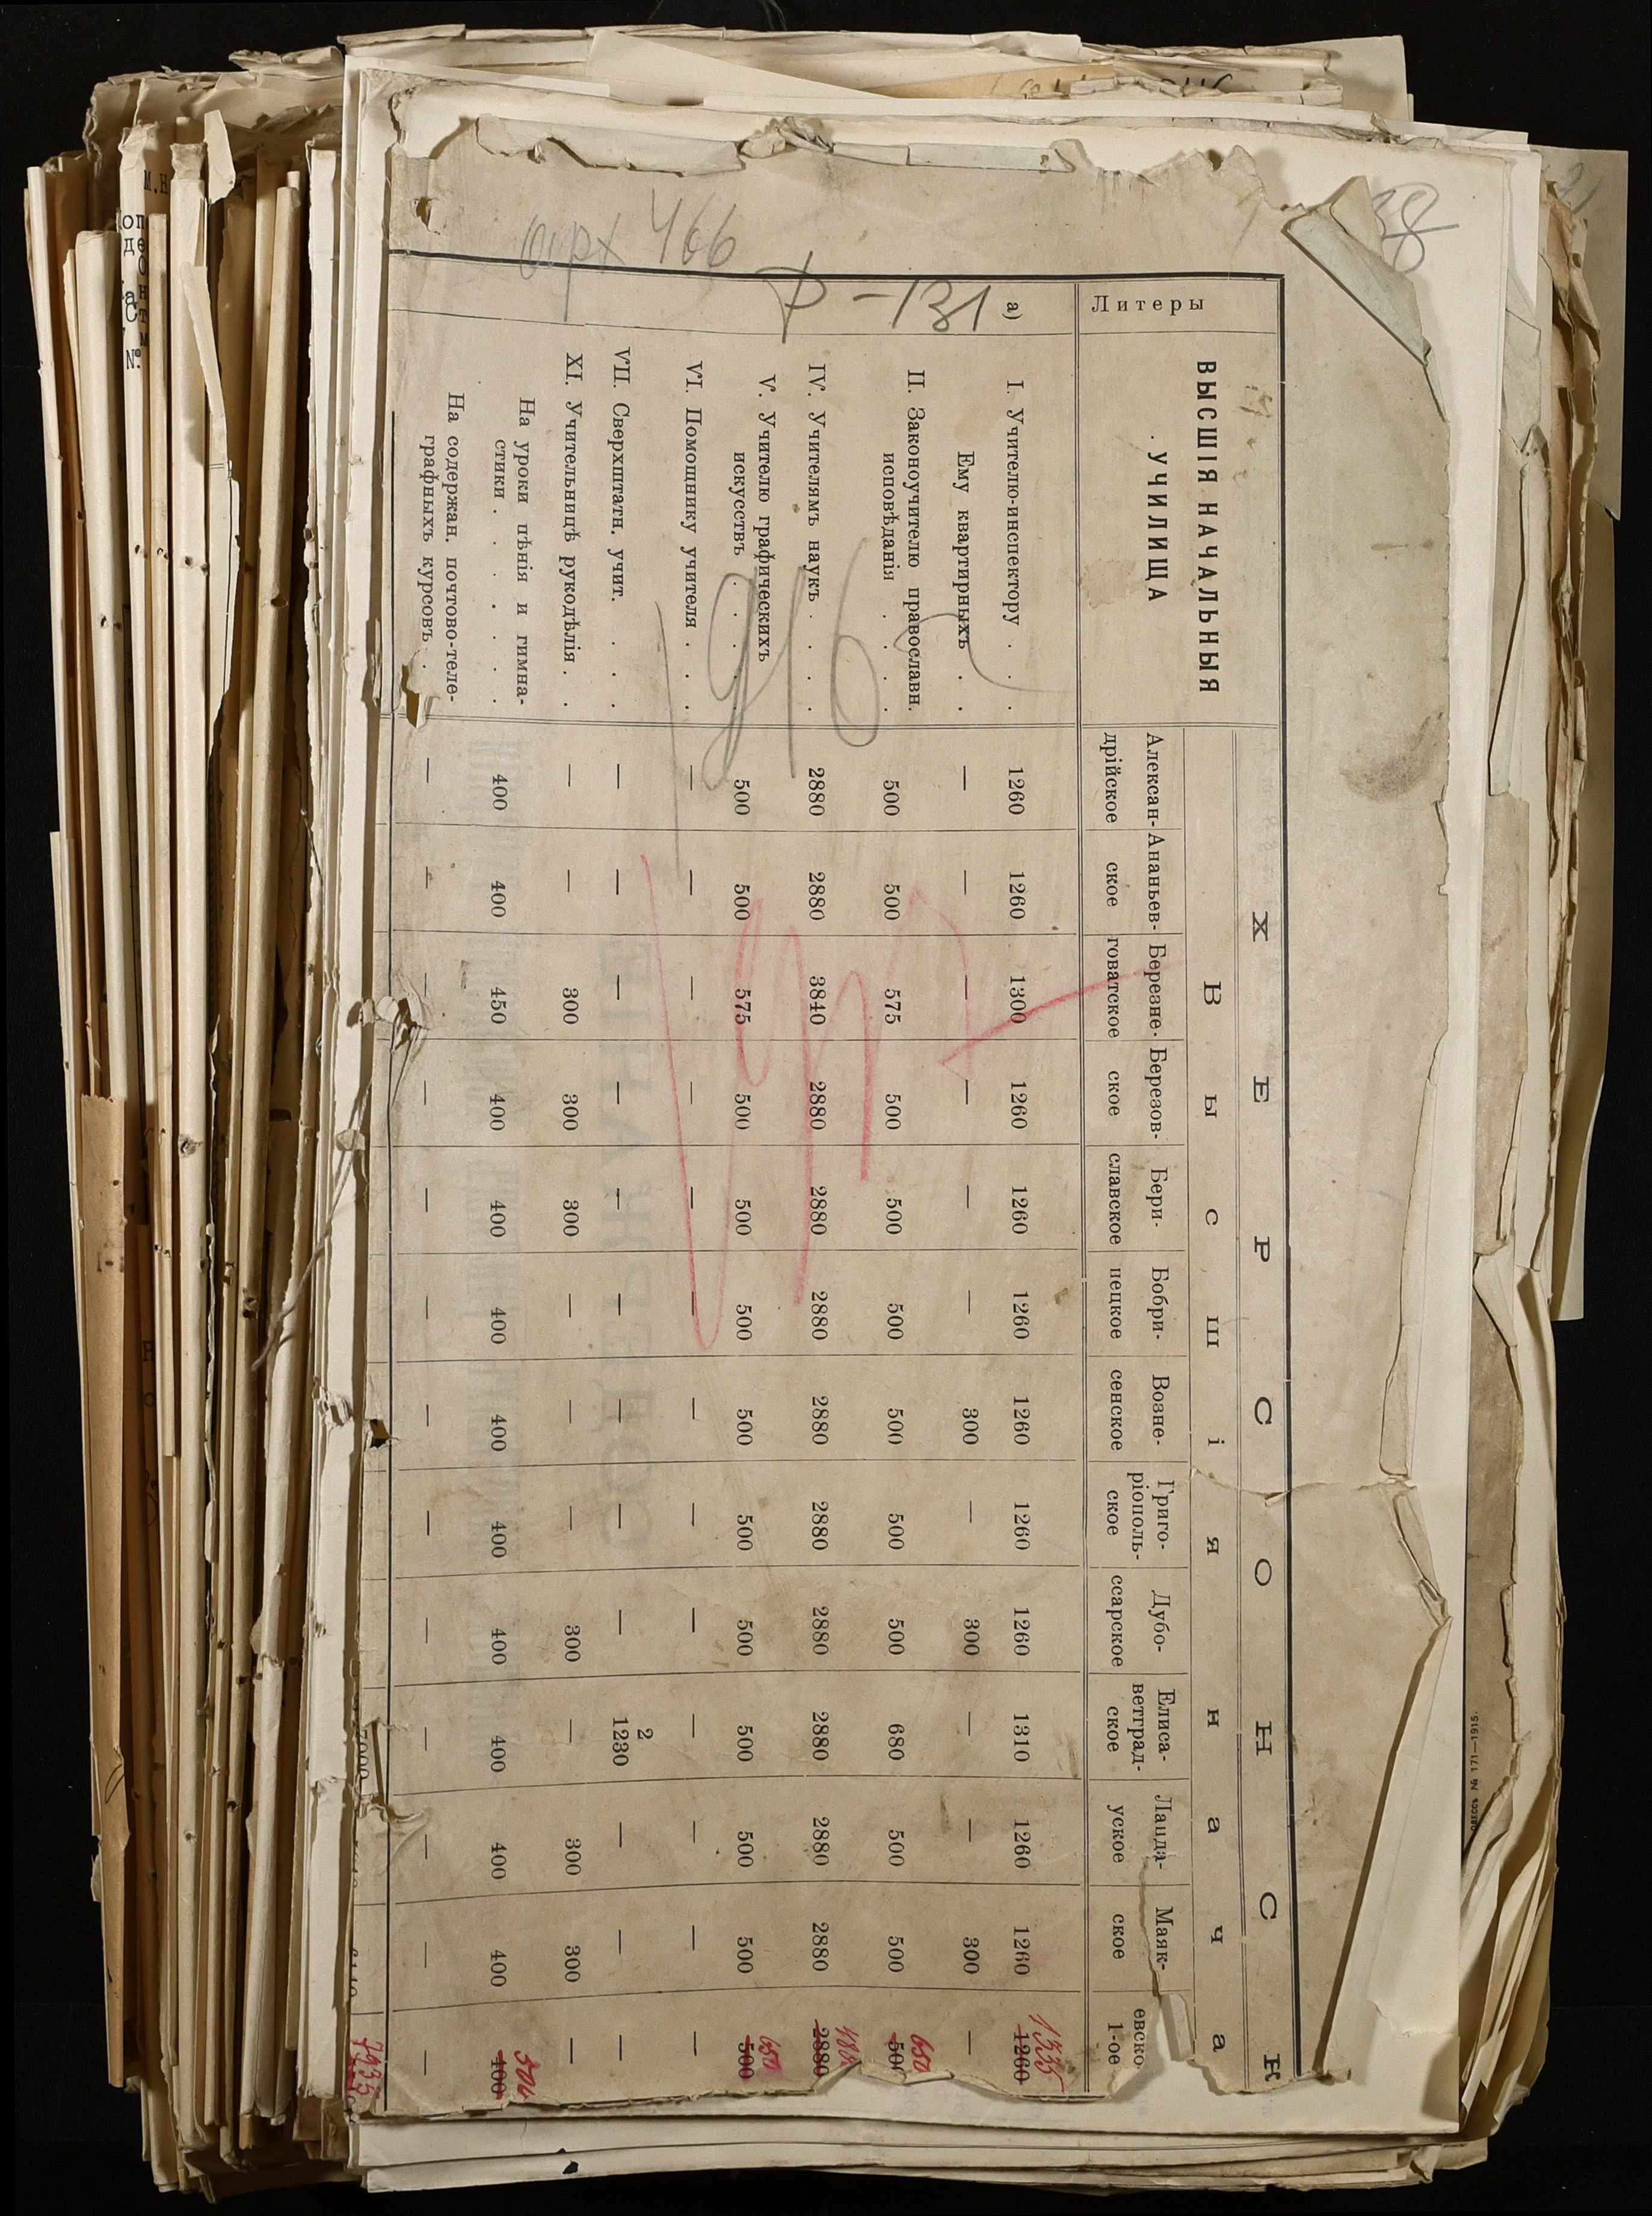 38
арх 466
Р-131
916
Х Е Р С О Н С К
В ы с ш і я н а ч а
Литеры
ВЫСШІЯ НАЧАЛЬНЫЯ
УЧИЛИЩА
Алексан- Ананьев- Березне- Березов- Бери- Бобри- Возне- Григо- Дубо- Елиса- Ланда- Маяк- евско
дрійское ское говатское ское славское нецкое сенское ріополь- ссарское ветград- уское ское 1-ое
ское ское
1335
а) I. Учителю-инспектору . . 1260 1260 1300 1260 1260 1260 1260 1260 1260 1310 1260 1260 1260
Ему квартирныхъ . . — — — — — — 300 — 300 — — 300 —
II. Законоучителю православн. 650
исповѣданія . . . 500 500 575 500 500 500 500 500 500 680 500 500 500
IV. Учителямъ наукъ . . . 2880 2880 3840 2880 2880 2880 2880 2880 2880 2880 2880 2880 2880
V. Учителю графическихъ 650
искусствъ . . . . 500 500 575 500 500 500 500 500 500 500 500 500 500
VI. Помощнику учителя . . . — — — — — — — — — — — — —
2
VII. Сверхштатн. учит. . . . — — — — — — — — — 1230 — — —
XI. Учительницѣ рукодѣлія . . — — 300 300 300 — — — 300 — 300 300 —
На уроки пѣнія и гимна- 504
стики . . . . . 400 400 450 400 400 400 400 400 400 400 400 400 400
На содержан. почтово-теле-
графныхъ курсовъ . . — — — — — — — — — — — — —
7935
№ 171—1915.